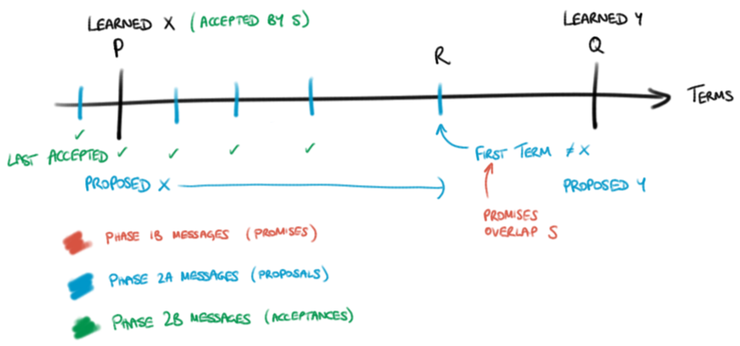 LEARNED X (ACCEPTED BY S)
P
LEARNED Y
Q
R
TERMS
✓ ✓ ✓ ✓ ✓
LAST ACCEPTED
FIRST TERM ≠ X
PROPOSED X
PROPOSED Y
PROMISES
OVERLAP S
PHASE 1B MESSAGES (PROMISES)
PHASE 2A MESSAGES (PROPOSALS)
PHASE 2B MESSAGES (ACCEPTANCES)